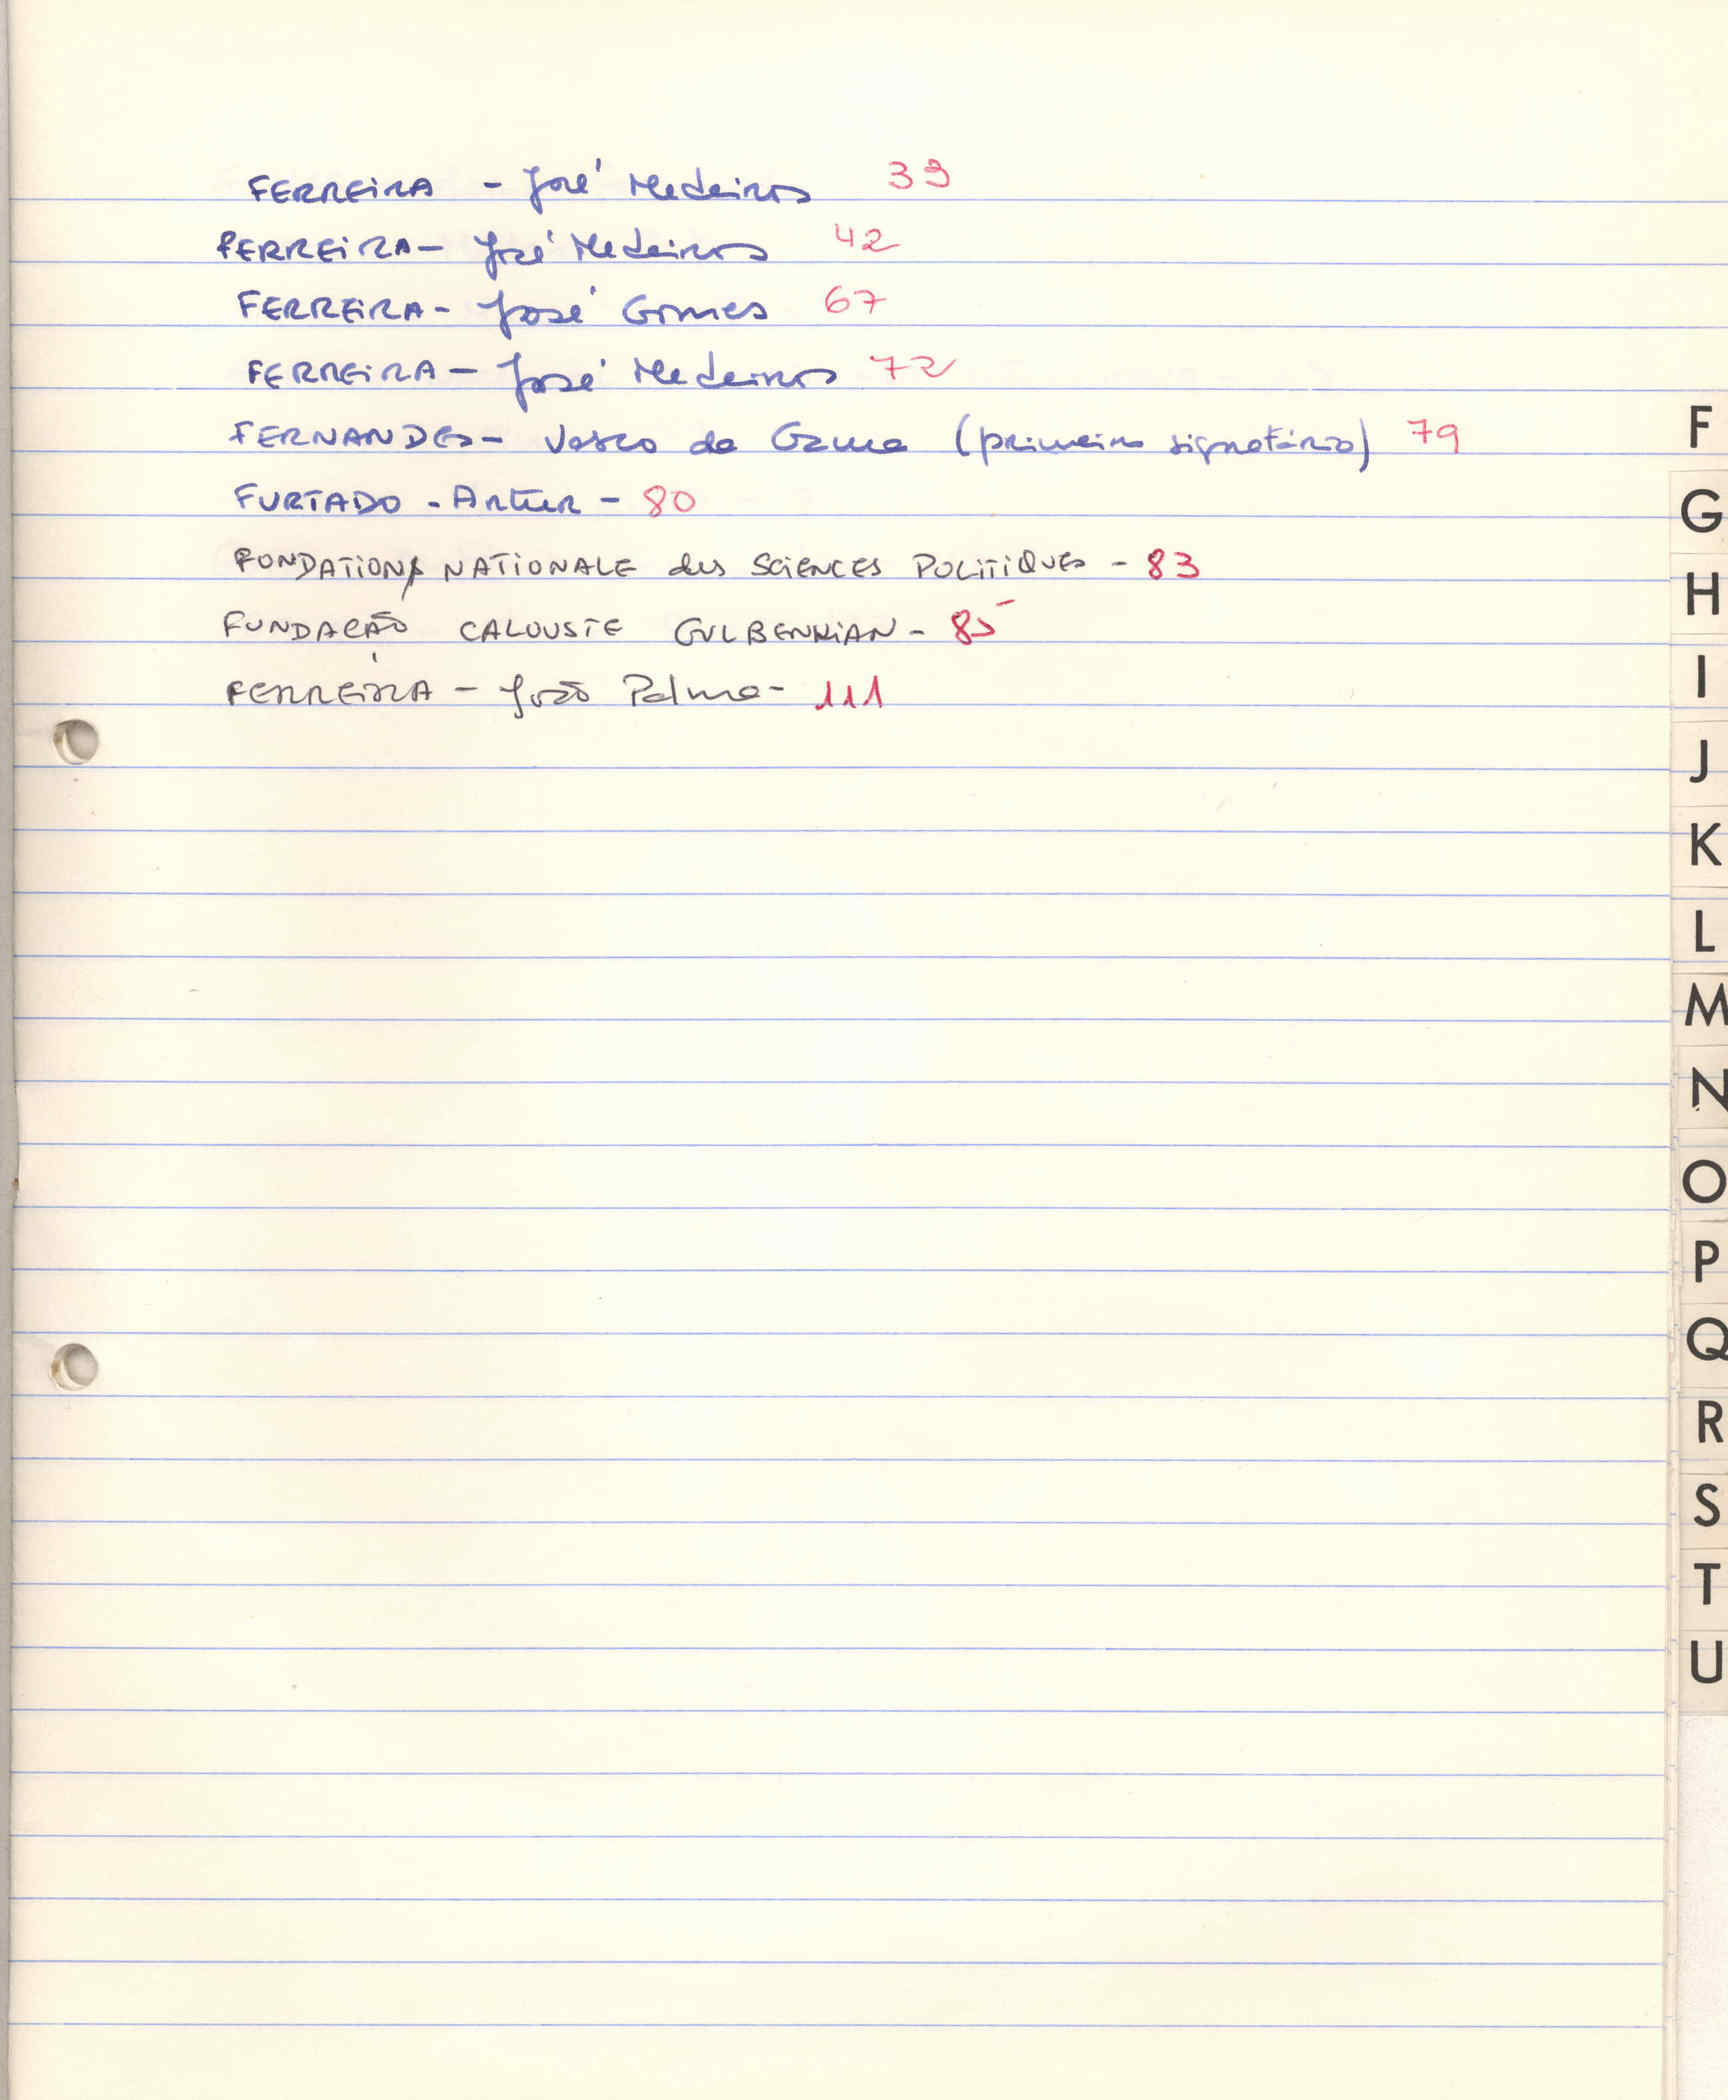 FERREIRA - José Medeiros 39
FERREIRA - José Medeiros 42
FERREIRA - José Gomes 67
FERREIRA - José Medeiros 72
FERNANDES - Vasco da Gama (primeiro signatário) 79
FURTADO - Artur - 80
FONDATION NATIONALE des SCIENCES POLITIQUES - 83
FUNDAÇÃO CALOUSTE GULBENKIAN - 85
FERREIRA - João Palma - 111
F
G
H
I
J
K
L
M
N
O
P
Q
R
S
T
U